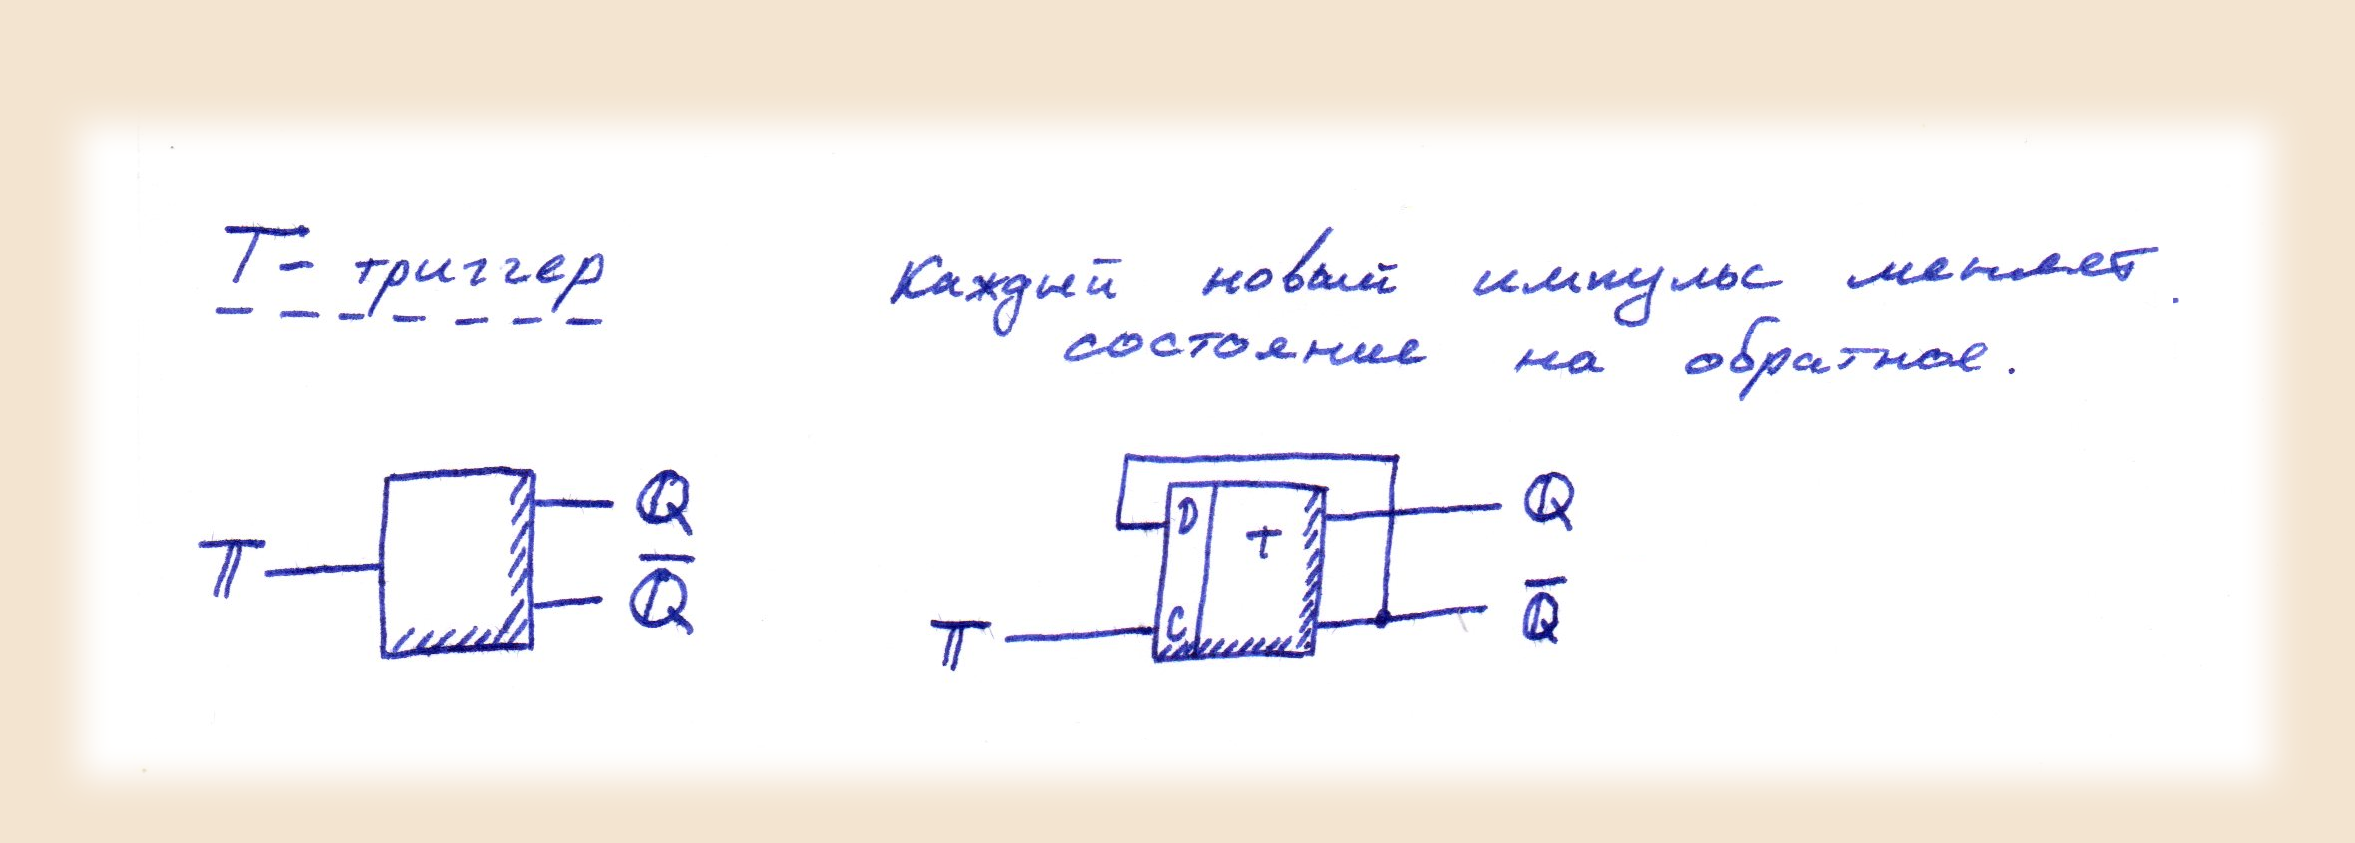 Т-триггер
Каждый новый импульс меняет
состояние на обратное.
T
Q
Q̅
D
T
C
T
Q
Q̅